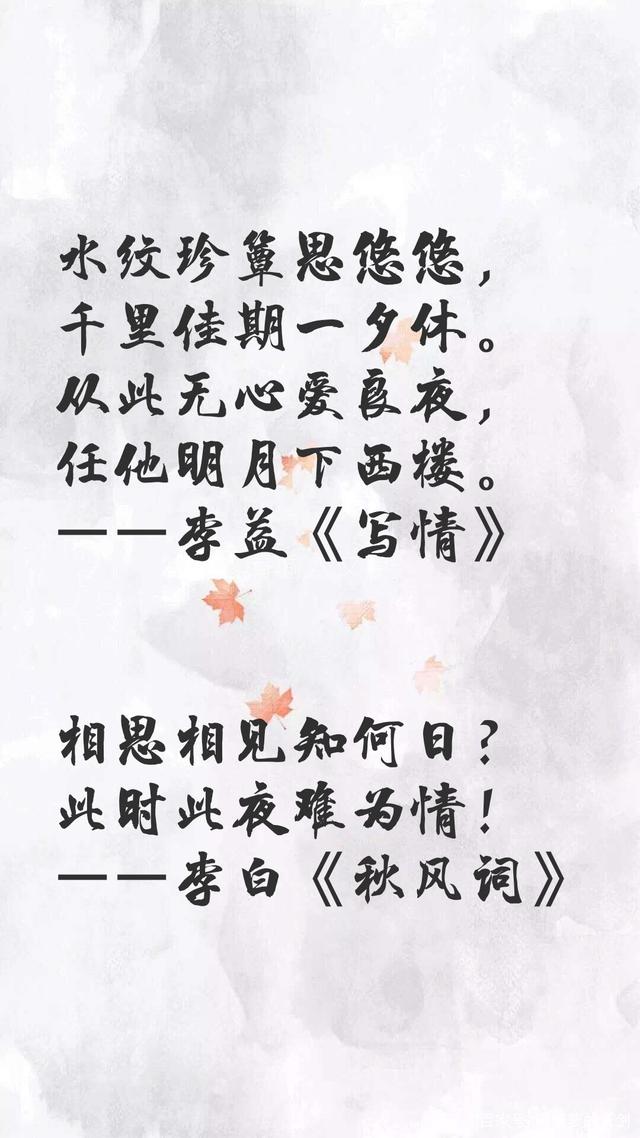 水纹珍簟思悠悠，
千里佳期一夕休。
从此无心爱良夜，
任他明月下西楼。
——李益《写情》
相思相见知何日？
此时此夜难为情！
——李白《秋风词》
百家号